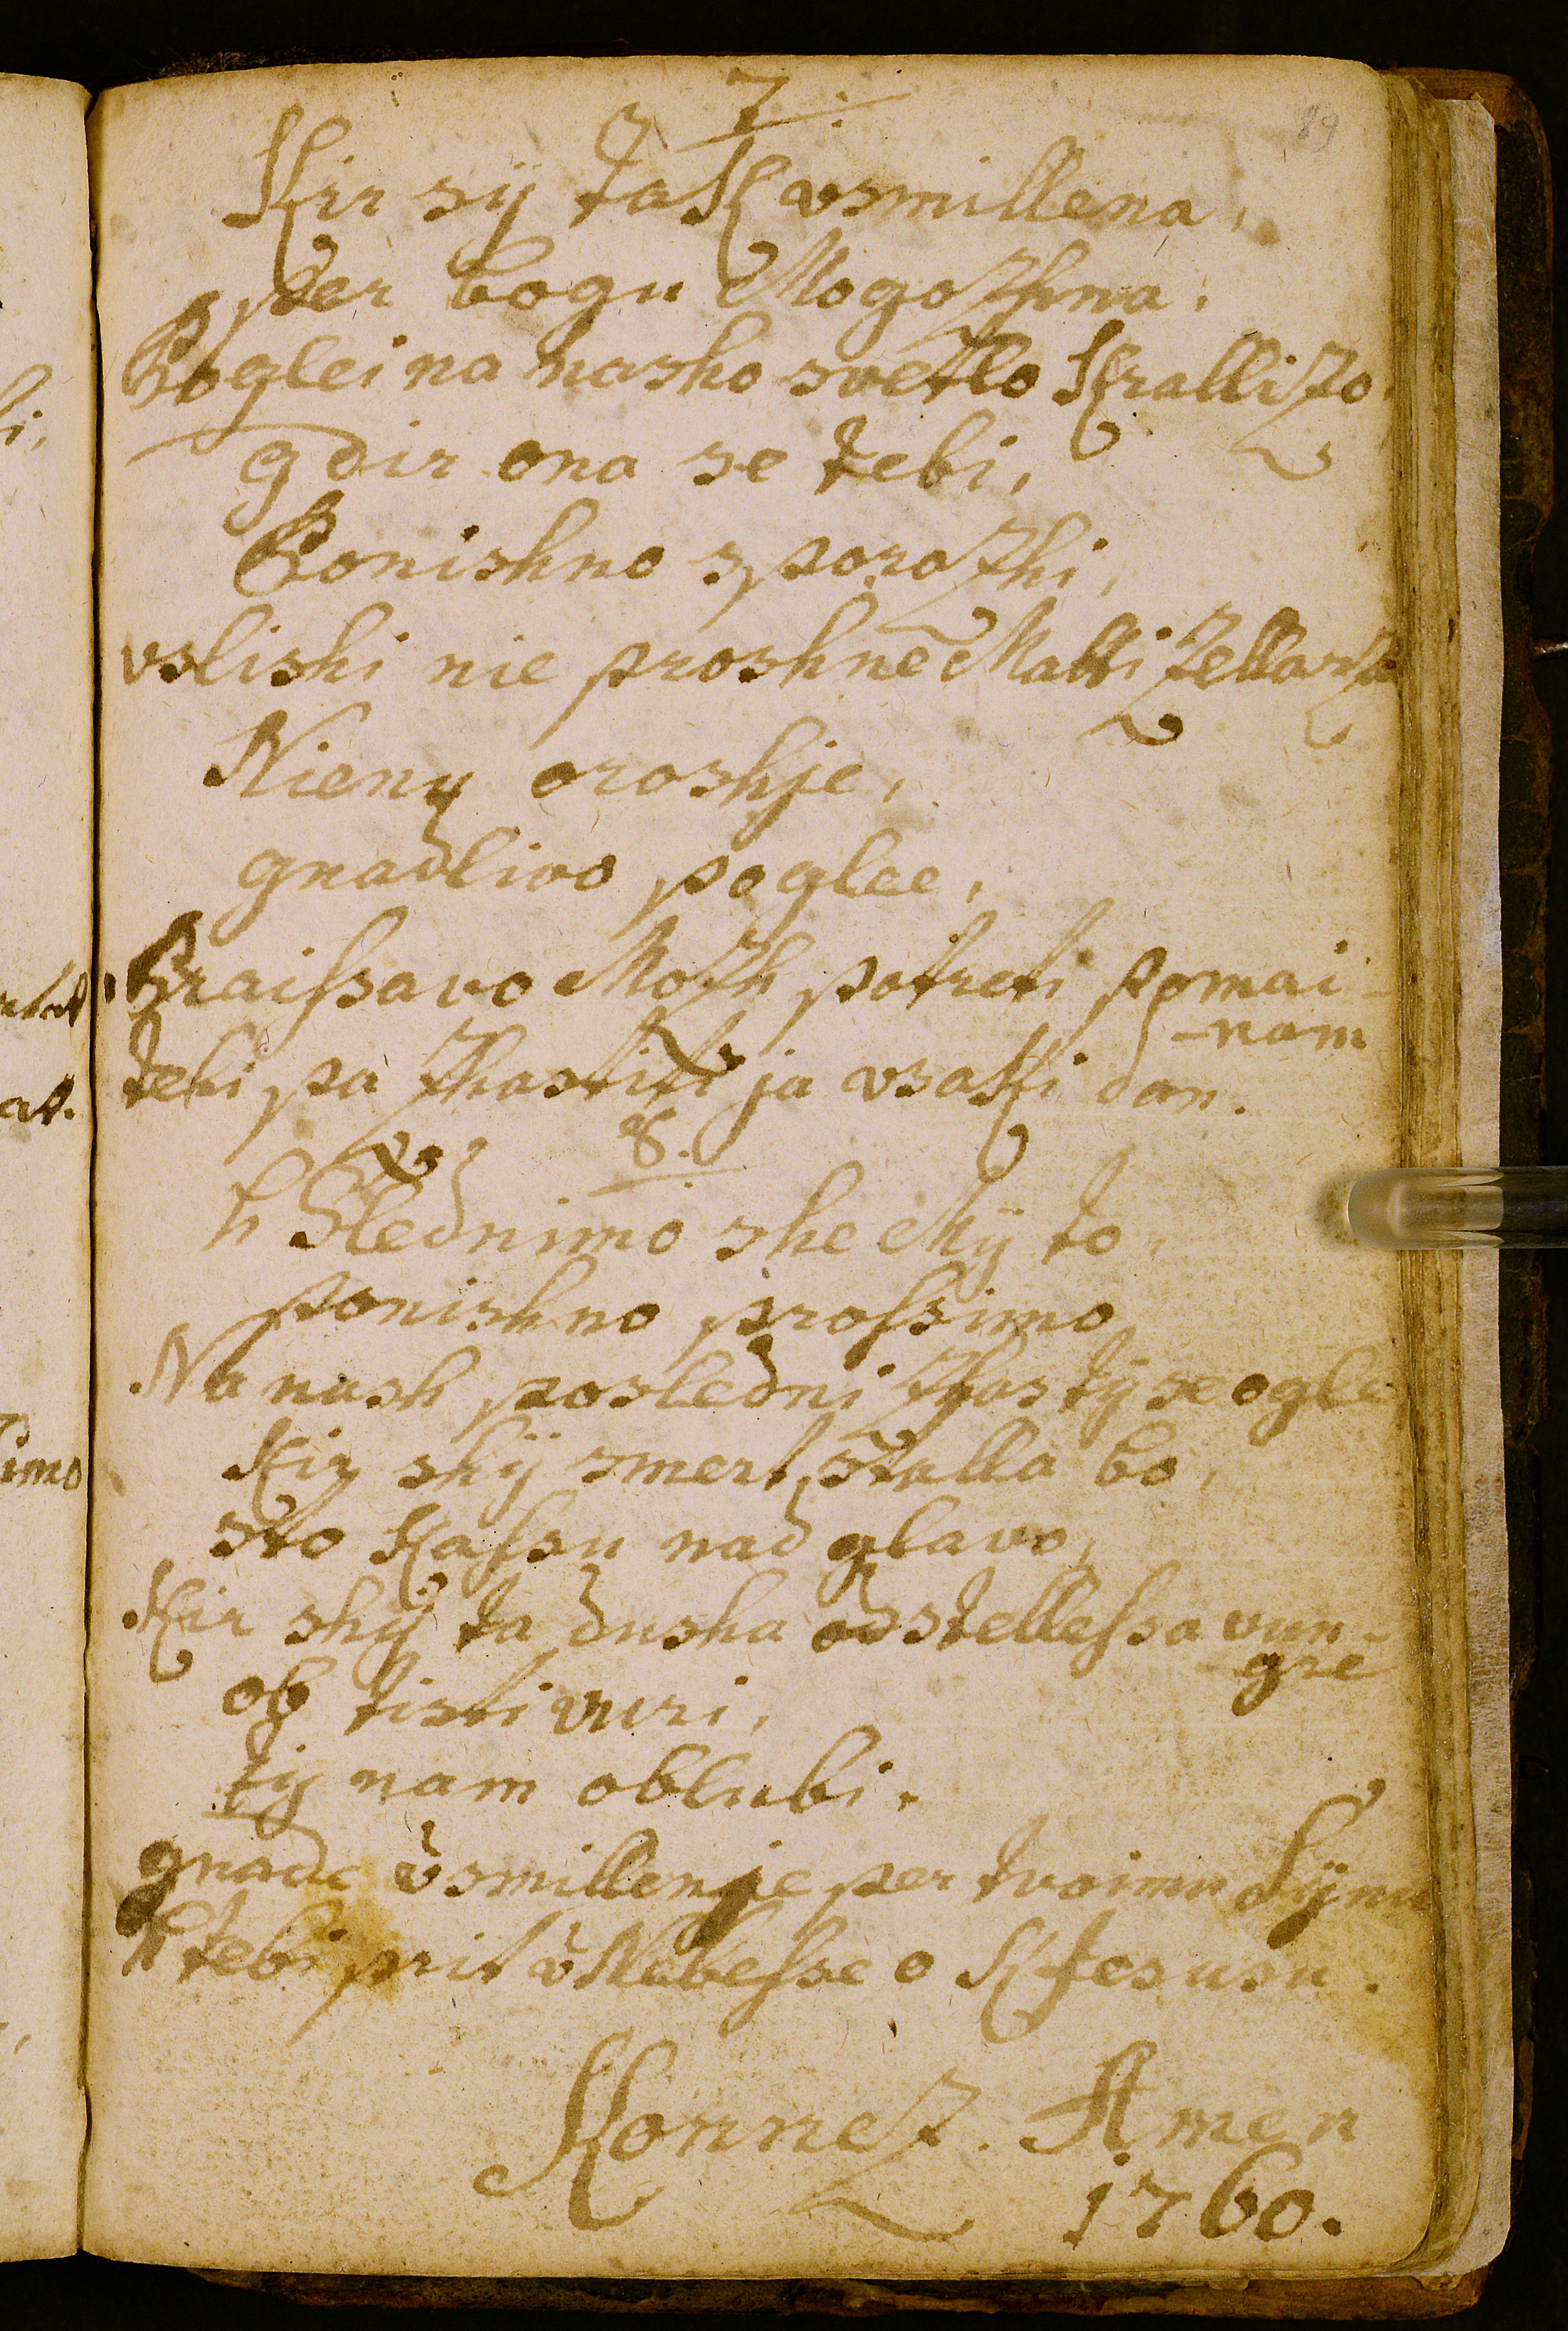 7.
89
Kir sÿ taK vsmillena,
per bogu Mogozhna.
Poglei na nasho svetlo Krallizo,
gdir ona se tebi,
Ponishno sporozhi,
vslishi nie proshne Matti Zellarza
Nieny oroshje,
gnadlivo poglee,
Praissavo Mozh potreti pomai-
-nam
tebi pa zhastiti ja vsaKi dan.
8.
h Slednimo she Mÿ to,
ponishno prossimo,
Na nash posledni zhas tÿ se ogle
Kir shÿ smert stalla bo,
sto Kassu nad glavo,
Kir shÿ ta dusha od stellessa vun-
gre
ob tisti vuri,
tÿ nam oblubi.
gnade vsmillenje per tvoimu Sÿnu
h tebi prit v Nebesse o K Jesusu.
Konnez. Amen
1760.